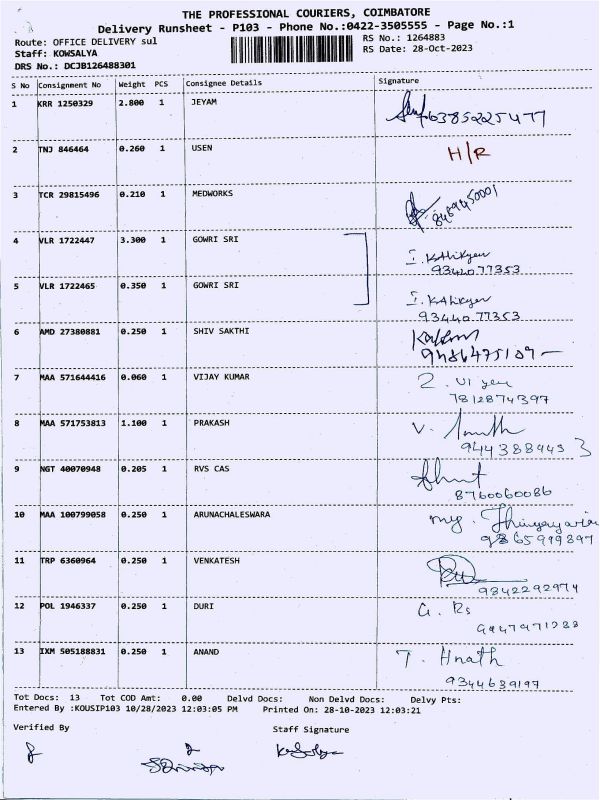 THE PROFESSIONAL COURIERS, COIMBATORE
Delivery Runsheet - P103 - Phone No.:0422-3505555 - Page No.:1
Route: OFFICE DELIVERY sul
RS No.: 1264883
Staff: KOWSALYA
RS Date: 28-Oct-2023
DRS No.: DCJB126488301
S No Consignment No Weight PCS Consignee Details Signature
1 KRR 1250329 2.800 1 JEYAM
6385225477
2 TNJ 846464 0.260 1 USEN H/R
3 TCR 29815496 0.210 1 MEDWORKS
4 VLR 1722447 3.300 1 GOWRI SRI
9344077353
5 VLR 1722465 0.350 1 GOWRI SRI
9344077353
6 AMD 27380881 0.250 1 SHIV SAKTHI
7 MAA 571644416 0.060 1 VIJAY KUMAR
7812874397
8 MAA 571753813 1.100 1 PRAKASH
9 NGT 40070948 0.205 1 RVS CAS
8760060086
10 MAA 100799058 0.250 1 ARUNACHALESWARA
9865999897
11 TRP 6360964 0.250 1 VENKATESH
9342292974
12 POL 1946337 0.250 1 DURI
13 IXM 505188831 0.250 1 ANAND
9344639197
Tot Docs: 13 Tot COD Amt: 0.00 Delvd Docs: Non Delvd Docs: Delvy Pts:
Entered By :KOUSIP103 10/28/2023 12:03:05 PM Printed On: 28-10-2023 12:03:21
Verified By Staff Signature